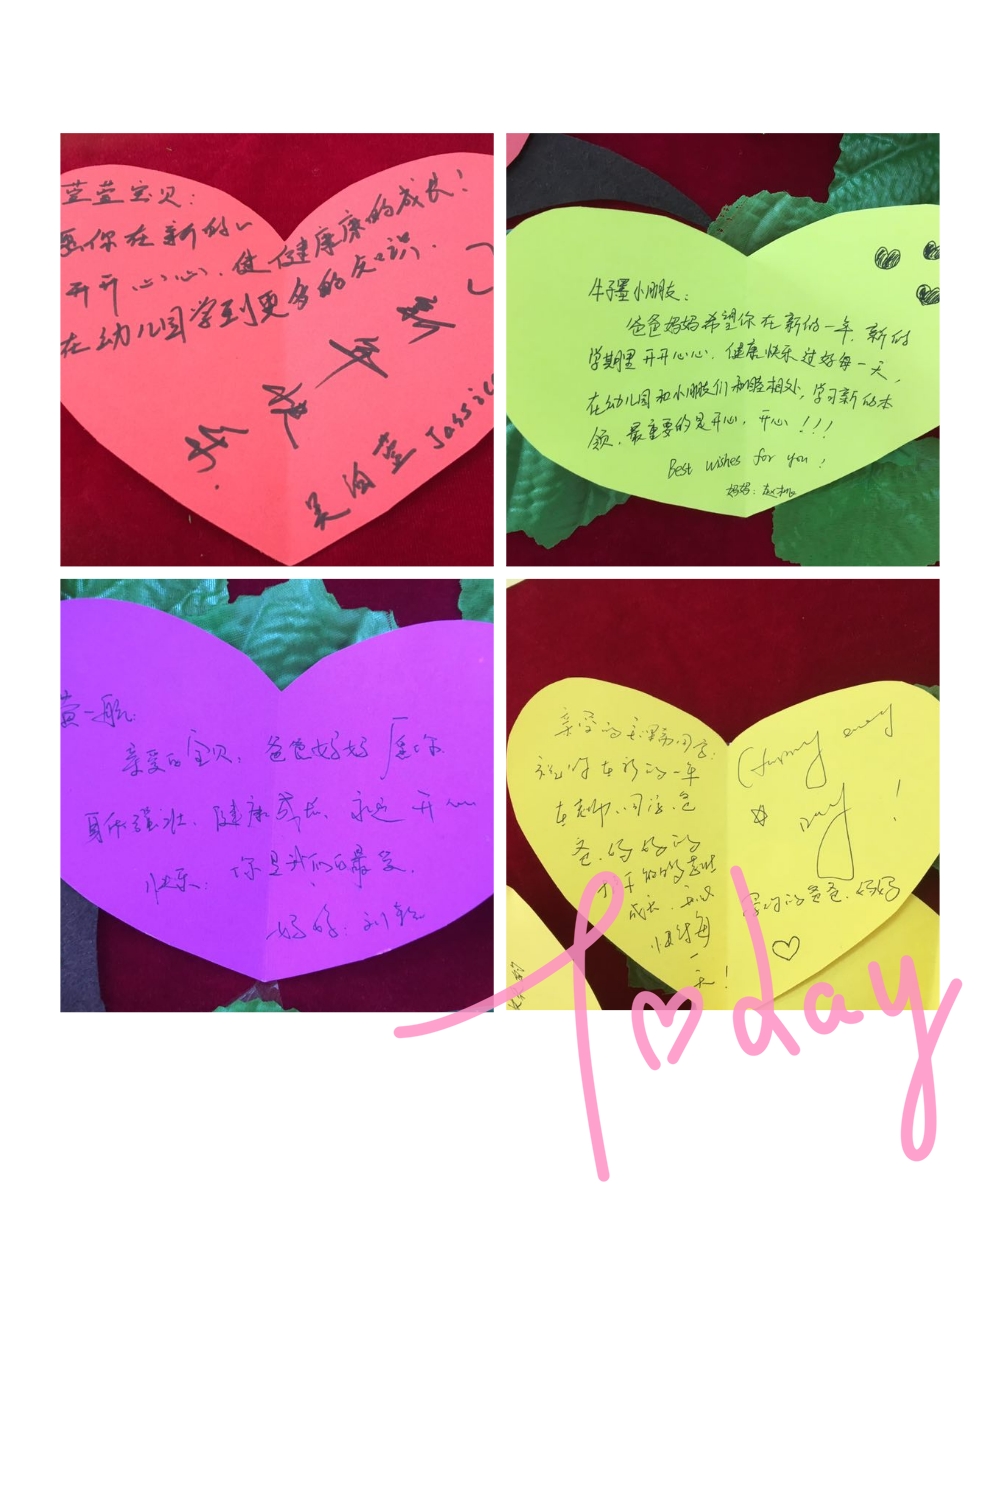 萱萱宝贝:
愿你在新的一
开开心心、健健康康的成长!
在幼儿园学到更多的知识.
新年快乐.
吴 萱 Jassic
小朋友:
爸爸妈妈希望你在新的一年,新的
学期里开开心心、健康快乐过好每一天,
在幼儿园和小朋友们和睦相处,学习新的本
领,最重要的是开心,开心!!!
Best wishes for you!
妈妈:赵
黄一航:
亲爱的宝贝,爸爸妈妈 愿你
身体强壮、健康成长、永远开心
快乐,你是我们的最爱.
妈妈:刘
亲爱的 同学:
祝你在新的一年
在老师、同学、爸
爸、妈妈的
成长
快乐每
一
天!
every
day!
爱你的爸爸、妈妈
Today